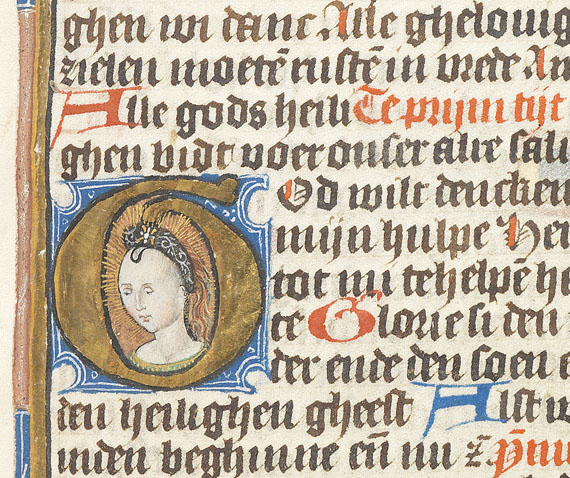 ghen wi danc Alle ghelouig
zielen moetē rustē in vrede An
Alle gods heili Te prijm tijt
ghen bidt voer onser alre sali
God wilt dencken
mijn hulpe Her
tot mi te helpē he
te Glorie si den
der ende den soen e
den heilighen gheest Alst w
inden beghinne eñ nu